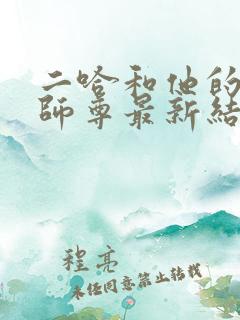 二哈和他的
師尊最新結
程亮
未经同意禁止转载